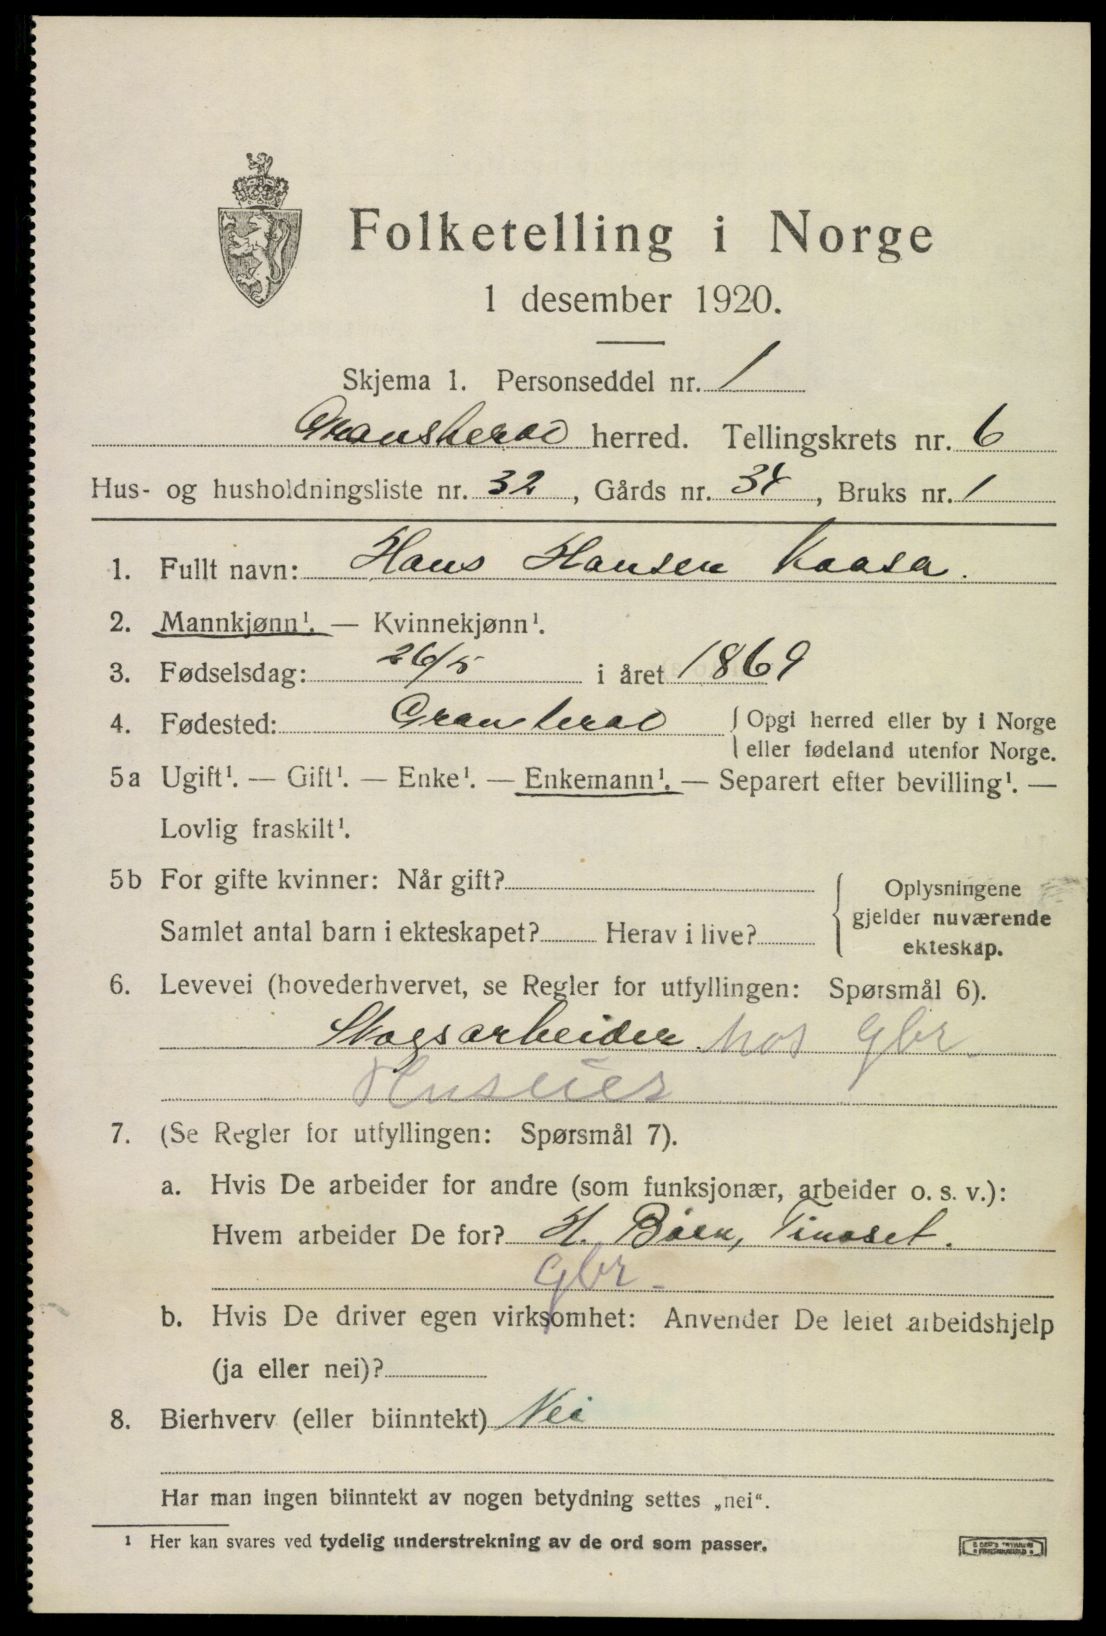 Folketelling i Norge
1 desember 1920.
Skjema 1. Personseddel nr. 1
Gransherad herred. Tellingskrets nr. 6
Hus- og husholdningsliste nr. 32, Gårds nr. 34, Bruks nr. 1
1. Fullt navn: Hans Hansen Kaasa.
2. Mannkjønn¹. — Kvinnekjønn¹.
3. Fødselsdag: 26/5 i året 1869
4. Fødested: Gransherad { Opgi herred eller by i Norge
eller fødeland utenfor Norge.
5a Ugift¹. — Gift¹. — Enke¹. — Enkemann¹. — Separert efter bevilling¹. —
Lovlig fraskilt¹.
5b For gifte kvinner: Når gift?
Samlet antal barn i ekteskapet? Herav i live?
{ Oplysningene
gjelder nuværende
ekteskap.
6. Levevei (hovederhvervet, se Regler for utfyllingen: Spørsmål 6).
Skogsarbeider hos gbr.
Huseier
7. (Se Regler for utfyllingen: Spørsmål 7).
a. Hvis De arbeider for andre (som funksjonær, arbeider o. s. v.):
Hvem arbeider De for? H. Bøen, Tinoset.
gbr.
b. Hvis De driver egen virksomhet: Anvender De leiet arbeidshjelp
(ja eller nei)?
8. Bierhverv (eller biinntekt) Nei
Har man ingen biinntekt av nogen betydning settes „nei“.
¹ Her kan svares ved tydelig understrekning av de ord som passer.